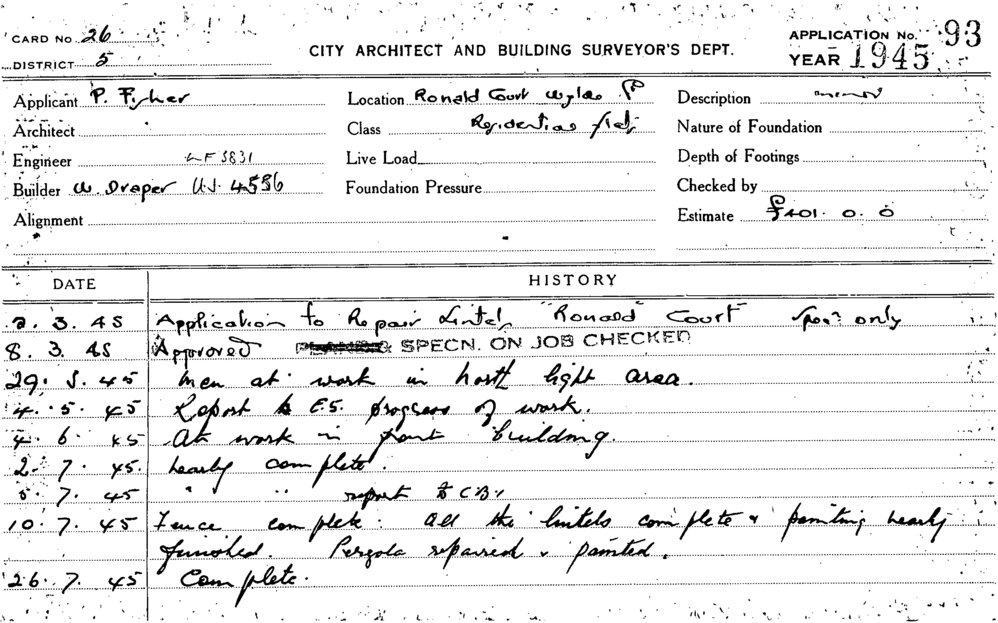 CARD No. 26
APPLICATION No. 93
DISTRICT 5
CITY ARCHITECT AND BUILDING SURVEYOR'S DEPT.
YEAR 1945
Applicant P. Fisher
Location Ronald Court Wylde
Description
Architect
Class Residential flats
Nature of Foundation
Engineer
Live Load
Depth of Footings
Builder W Draper U.J. 4586
Foundation Pressure
Checked by
Alignment
Estimate £401. 0. 0
DATE
HISTORY
2. 3. 45 Application to Repair Lintels "Ronald Court" only
8. 3. 45 Approved SPECN. ON JOB CHECKED
29. 45 Men at work in north light area.
4. 5. 45 Report to E.S. progress of work.
4. 6. 45 At work in front building.
2. 7. 45. Nearly complete.
5. 7. 45 " " report to C.B.I
10. 7. 45 Fence complete. All the lintels complete & painting nearly
finished. Pergola repaired & painted.
26. 7. 45 Complete.